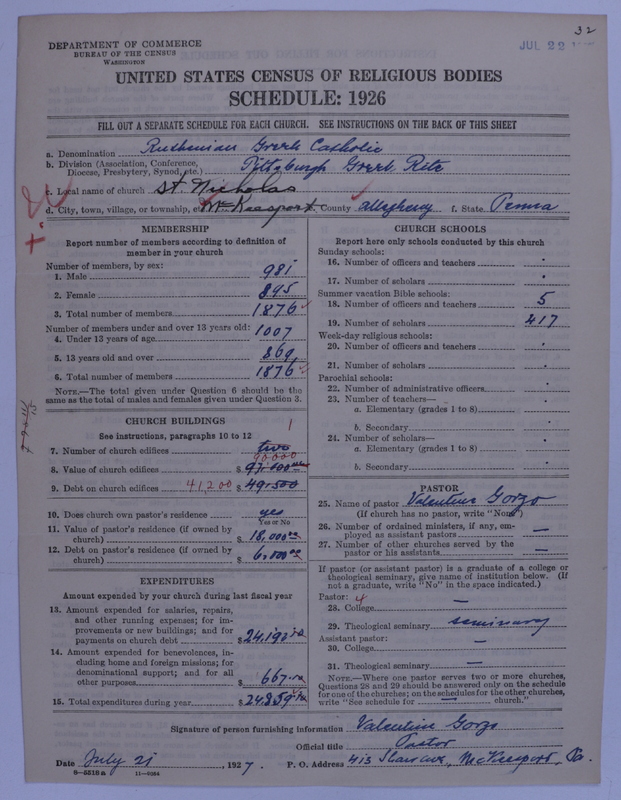 32
DEPARTMENT OF COMMERCE
BUREAU OF THE CENSUS
WASHINGTON
JUL 22
UNITED STATES CENSUS OF RELIGIOUS BODIES
SCHEDULE: 1926
FILL OUT A SEPARATE SCHEDULE FOR EACH CHURCH. SEE INSTRUCTIONS ON THE BACK OF THIS SHEET
a. Denomination Ruthenian Greek Catholic
b. Division (Association, Conference, Diocese, Presbytery, Synod, etc.) Pittsburgh Greek Rite
c. Local name of church St. Nicholas
d. City, town, village, or township, etc. McKeesport e. County Allegheny f. State Penna
MEMBERSHIP
Report number of members according to definition of
member in your church
Number of members, by sex:
1. Male 981
2. Female 895
3. Total number of members 1876
Number of members under and over 13 years old:
4. Under 13 years of age 1007
5. 13 years old and over 869
6. Total number of members 1876
NOTE.—The total given under Question 6 should be the
same as the total of males and females given under Question 3.
CHURCH BUILDINGS
See instructions, paragraphs 10 to 12
1
7. Number of church edifices two
90,000
8. Value of church edifices $
9. Debt on church edifices 41,200 $ 49,500
10. Does church own pastor's residence? yes
Yes or No
11. Value of pastor's residence (if owned by
church) $ 18,000.00
12. Debt on pastor's residence (if owned by
church) $ 6,800.00
EXPENDITURES
Amount expended by your church during last fiscal year
13. Amount expended for salaries, repairs,
and other running expenses; for im-
provements or new buildings; and for
payments on church debt $ 24,192
14. Amount expended for benevolences, in-
cluding home and foreign missions; for
denominational support; and for all
other purposes 667
15. Total expenditures during year $ 24,859
CHURCH SCHOOLS
Report here only schools conducted by this church
Sunday schools:
16. Number of officers and teachers
17. Number of scholars
Summer vacation Bible schools:
18. Number of officers and teachers 5
19. Number of scholars 417
Week-day religious schools:
20. Number of officers and teachers
21. Number of scholars
Parochial schools:
22. Number of administrative officers
23. Number of teachers—
a. Elementary (grades 1 to 8)
b. Secondary
24. Number of scholars—
a. Elementary (grades 1 to 8)
b. Secondary
PASTOR
25. Name of pastor Valentine Gorzo
(If church has no pastor, write "None")
26. Number of ordained ministers, if any, em-
ployed as assistant pastors —
27. Number of other churches served by the
pastor or his assistants —
If pastor (or assistant pastor) is a graduate of a college or
theological seminary, give name of institution below. (If
not a graduate, write "No" in the space indicated.)
Pastor: 4
28. College —
29. Theological seminary seminary
Assistant pastor:
30. College —
31. Theological seminary —
NOTE.—Where one pastor serves two or more churches,
Questions 28 and 29 should be answered only on the schedule
for one of the churches; on the schedules for the other churches,
write "See schedule for — church."
Signature of person furnishing information Valentine Gorzo
Official title Pastor
Date July 21, 1927. P. O. Address 413 Ave, McKeesport, Pa.
8-5518a 11-9264